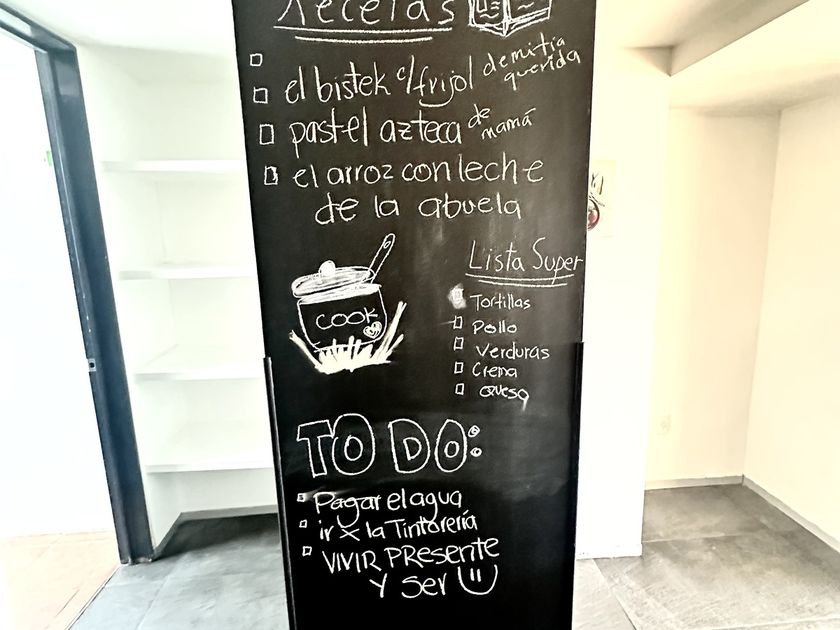 Recetas
el bistek c/frijol de mi tia querida
pastel azteca de mamá
el arroz con leche
de la abuela
cook
Lista Super
Tortillas
Pollo
Verduras
Crema
Queso
TO DO:
Pagar el agua
ir x la Tintorería
VIVIR PResente
Y Ser